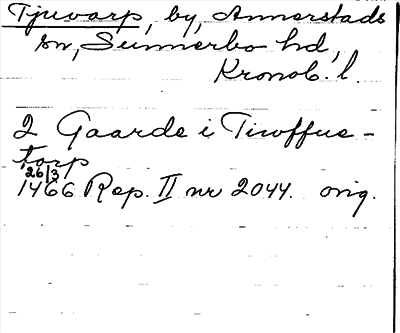 Tjuvarp, by, Annerstads
sn, Sunnerbo hd,
Kronob. l.
2 Gaarde i Tiwffues-
torp
26/3
1466 Rep. II nr 2044. orig.